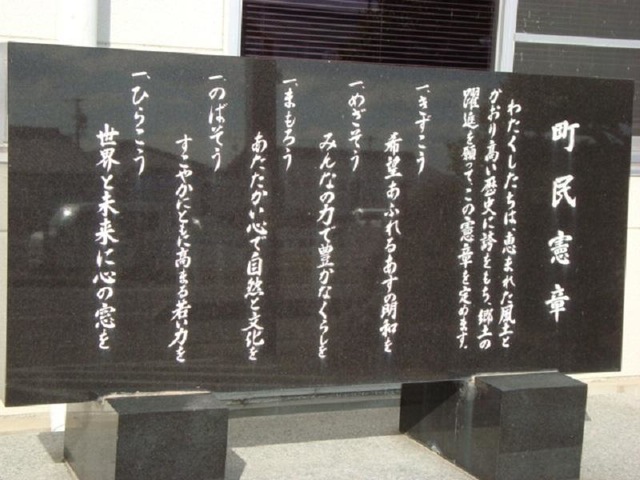 町民憲章
わたくしたちは、恵まれた風土と
かおり高い歴史に誇をもち、郷土の
躍進を願って、この憲章を定めます。
一、きずこう
希望あふれるあすの明和を
一、めざそう
みんなの力で豊かなくらしを
一、まもろう
あたたかい心で自然と文化を
一、のばそう
すこやかにともに高まる若い力を
一、ひらこう
世界と未来に心の窓を